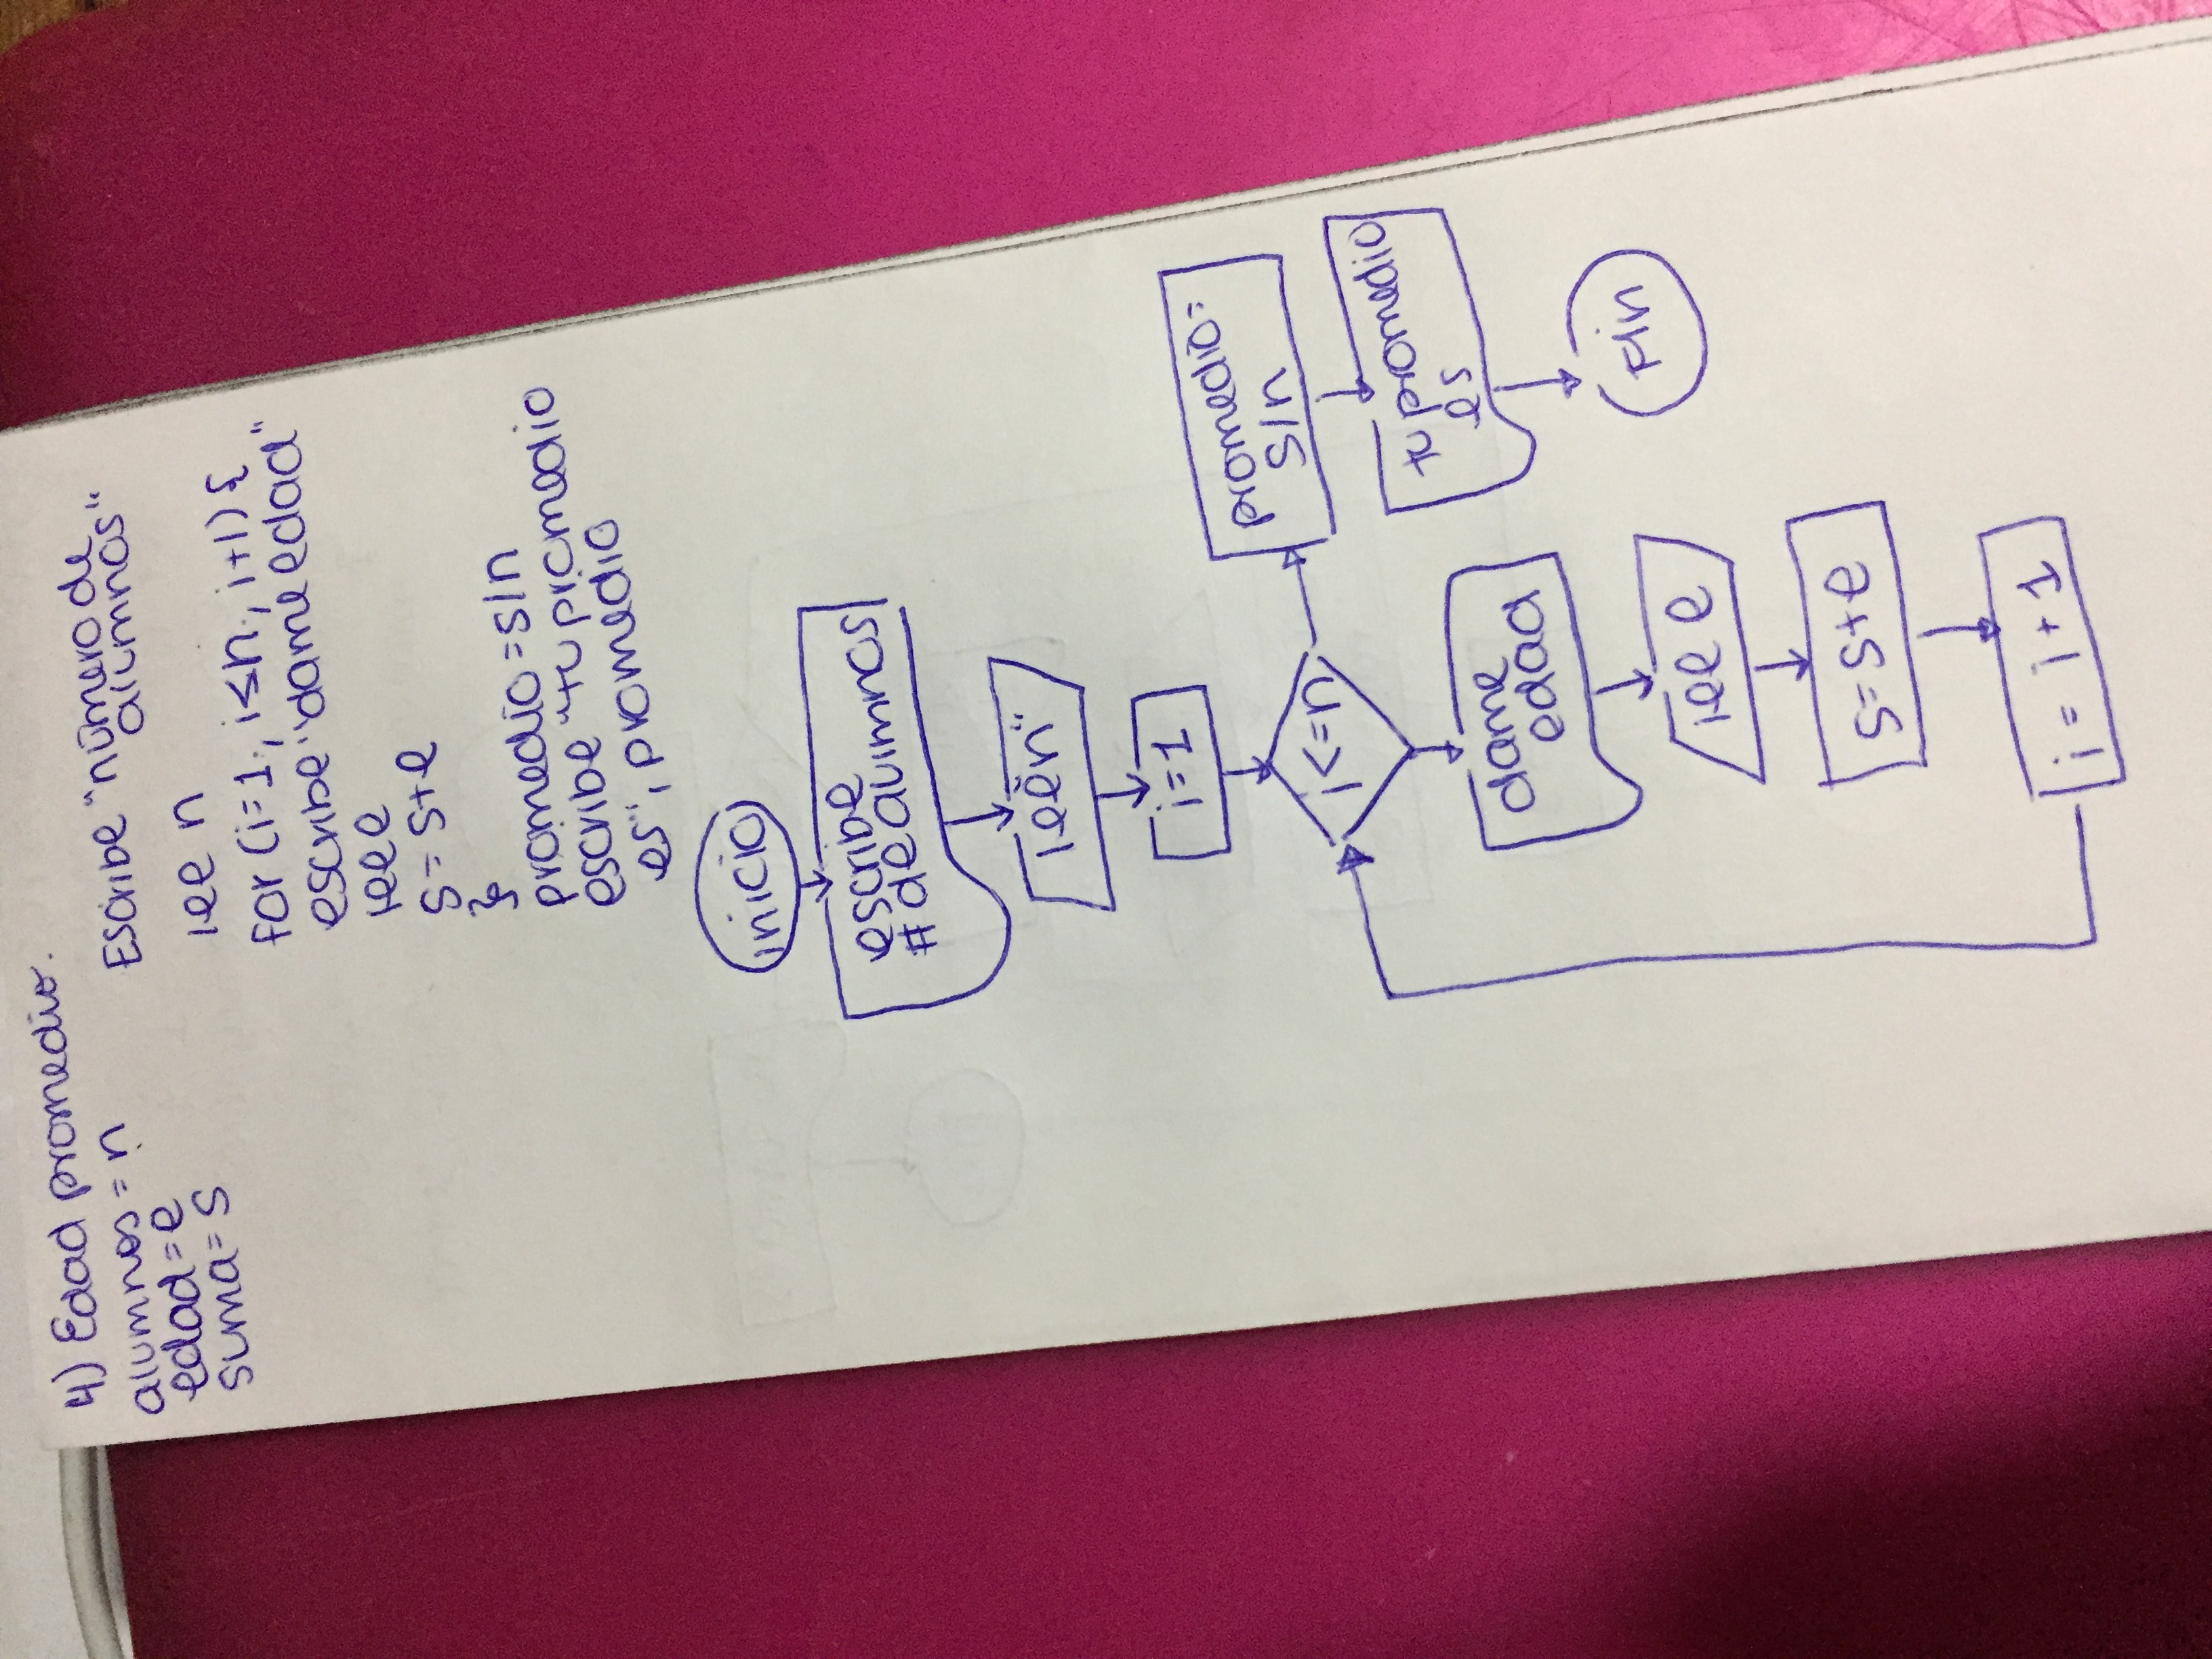 4) Edad promedio.
alumnos = n
edad = e
suma = s
Escribe "número de
alumnos"
lee n
for (i=1; i≤n; i+1) {
escribe "dame edad"
lee e
s = s+e
}
promedio = s/n
escribe "tu promedio
es", promedio
inicio
escribe
# de alumnos
lee "n"
i=1
i<=n
promedio=
s/n
tu promedio
es
Fin
dame
edad
lee e
s=s+e
i = i+1